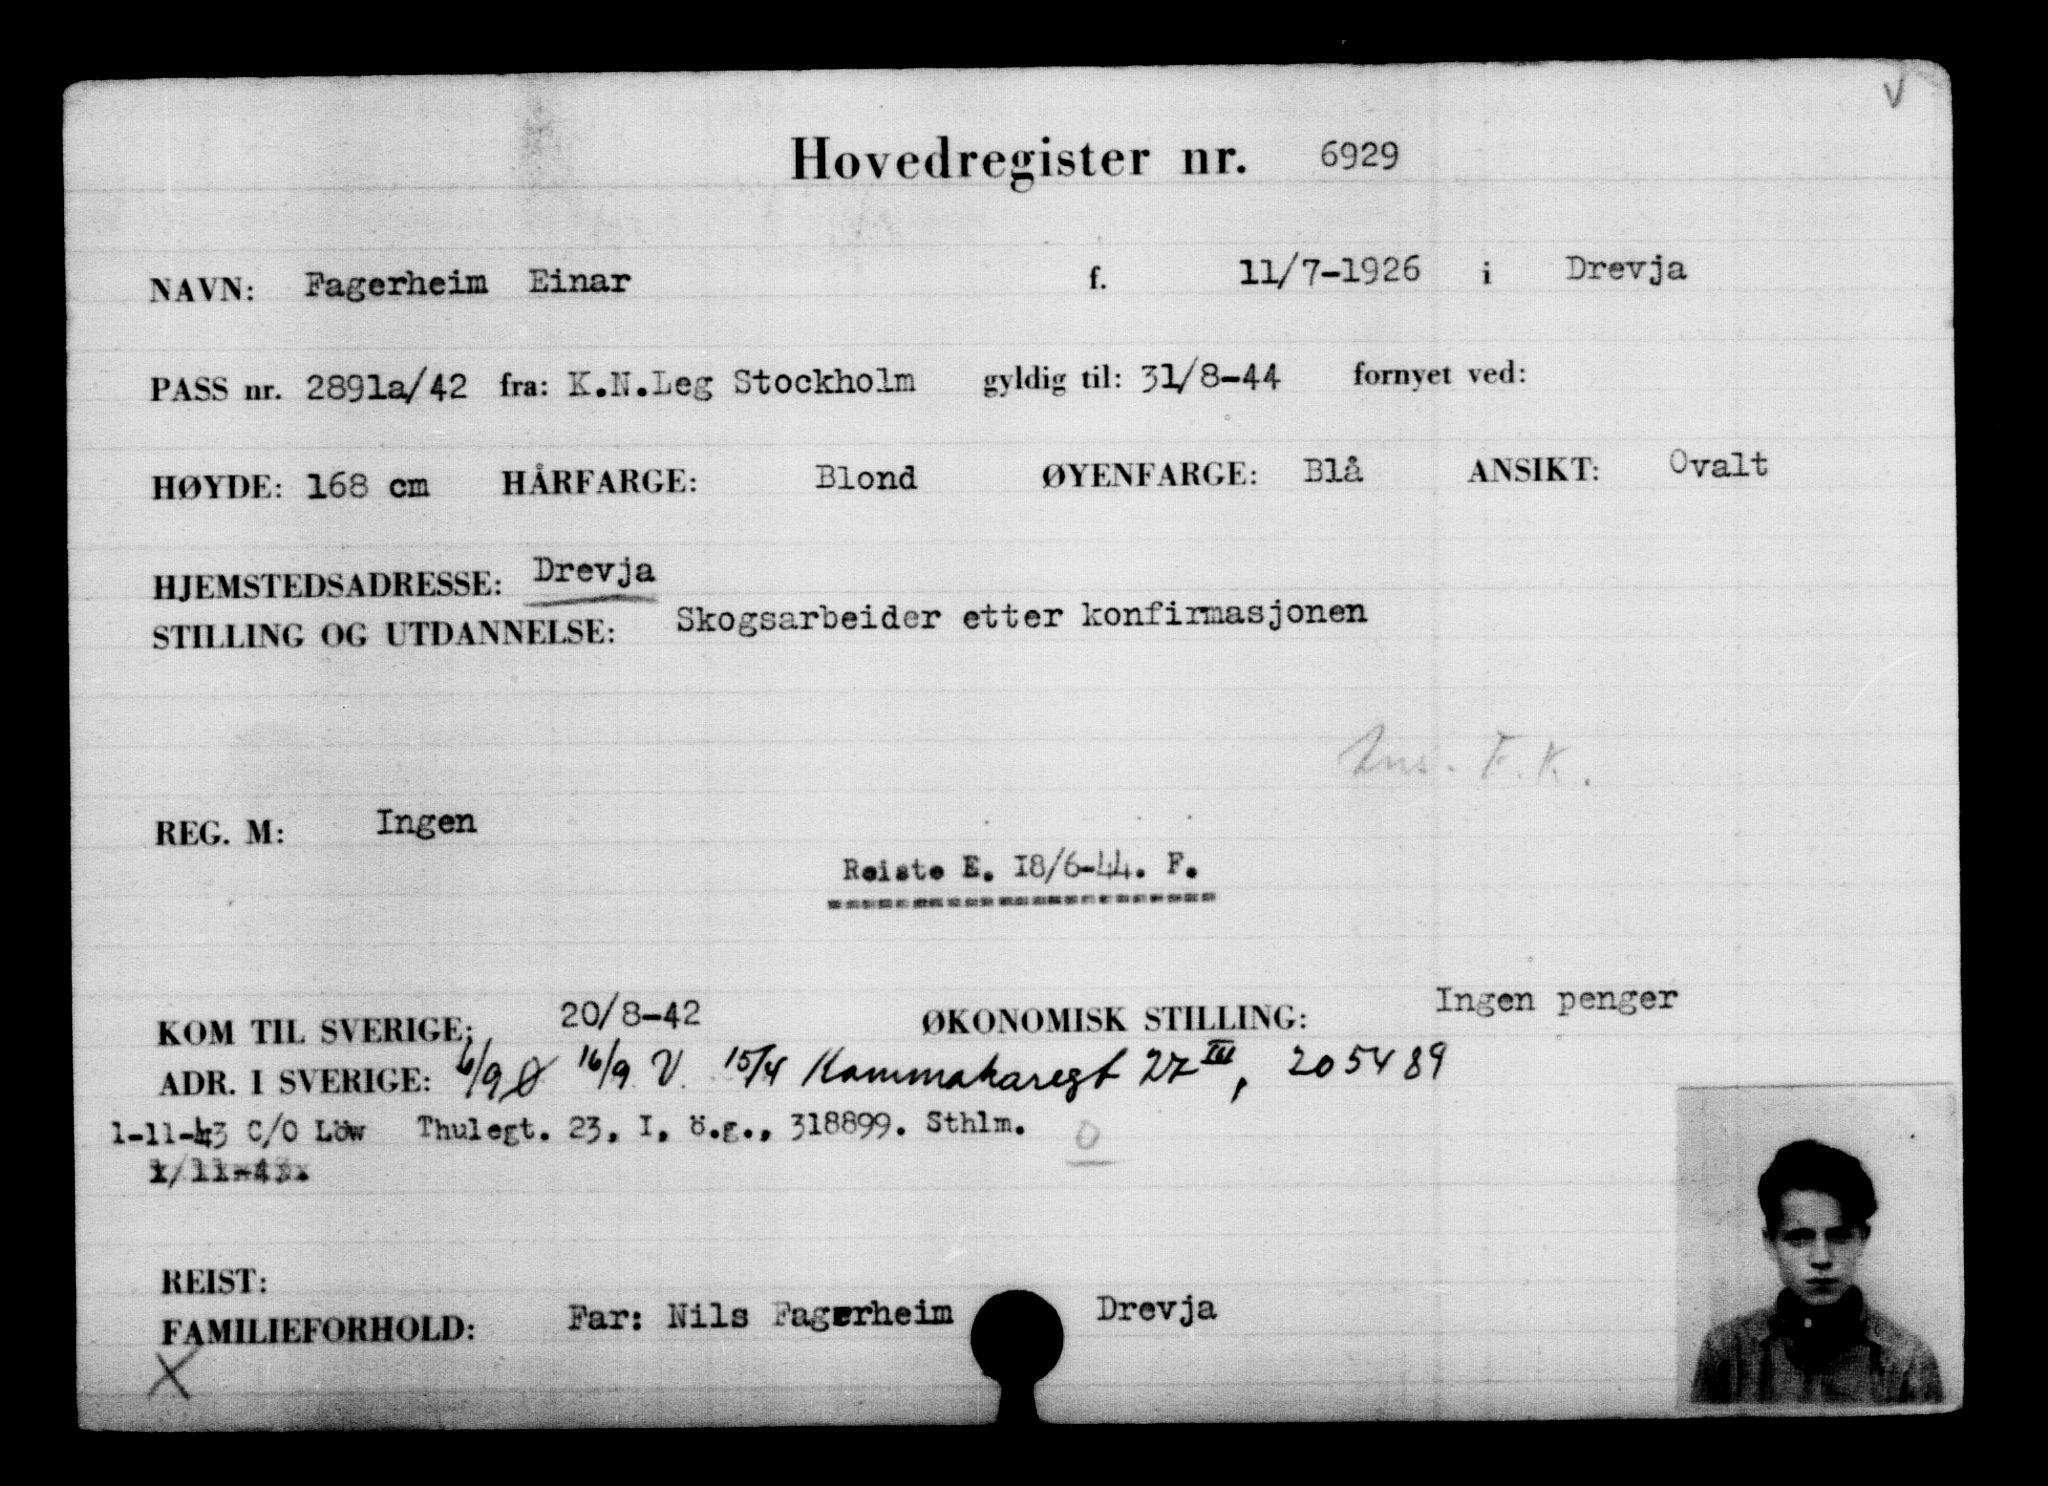 V
Hovedregister nr. 6929
NAVN: Fagerheim Einar f. 11/7-1926 i Drevja
PASS nr. 2891a/42 fra: K.N.Leg Stockholm gyldig til: 31/8-44 fornyet ved:
HØYDE: 168 cm HÅRFARGE: Blond ØYENFARGE: Blå ANSIKT: Ovalt
HJEMSTEDSADRESSE: Drevja
STILLING OG UTDANNELSE: Skogsarbeider etter konfirmasjonen
F.K.
REG. M: Ingen
Reiste E. 18/6-44. F.
KOM TIL SVERIGE: 20/8-42 ØKONOMISK STILLING: Ingen penger
ADR. I SVERIGE: 6/9 Ø 16/9 V. 15/4 Kammakaregt 27 III, 205489
1-11-43 C/O Löw Thulegt. 23, I, ö.g., 318899. Sthlm. O
1/11-43.
REIST:
FAMILIEFORHOLD: Far: Nils Fagerheim Drevja
X